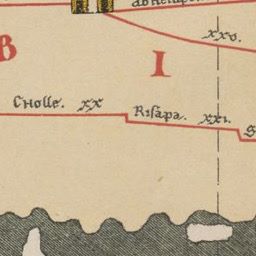 xxv.
B
I
Cholle. xx
Risapa. xxi.